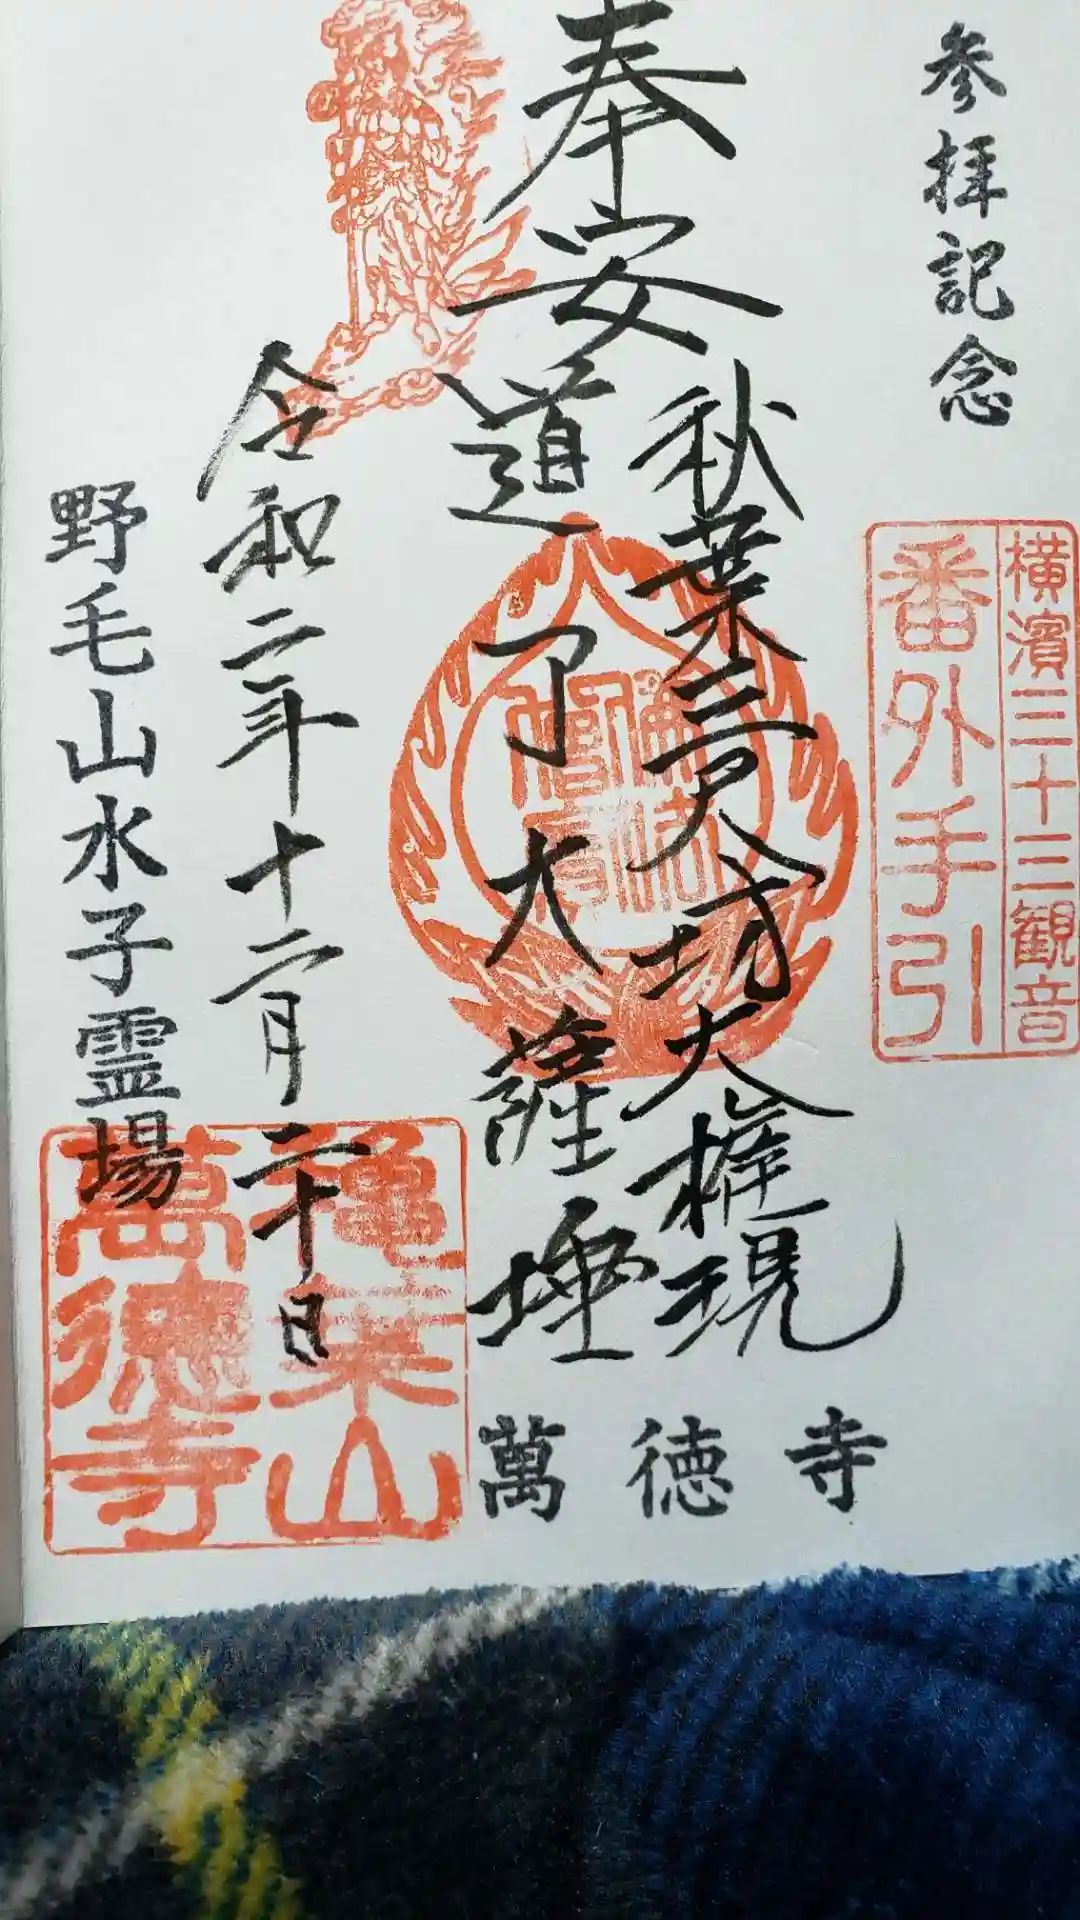 参拝記念
横濱三十三観音
番外手引
奉安
秋葉三尺坊大権現
道了大薩埵
令和二年十二月二十日
野毛山水子霊場
亀葉山
萬德寺
萬徳寺